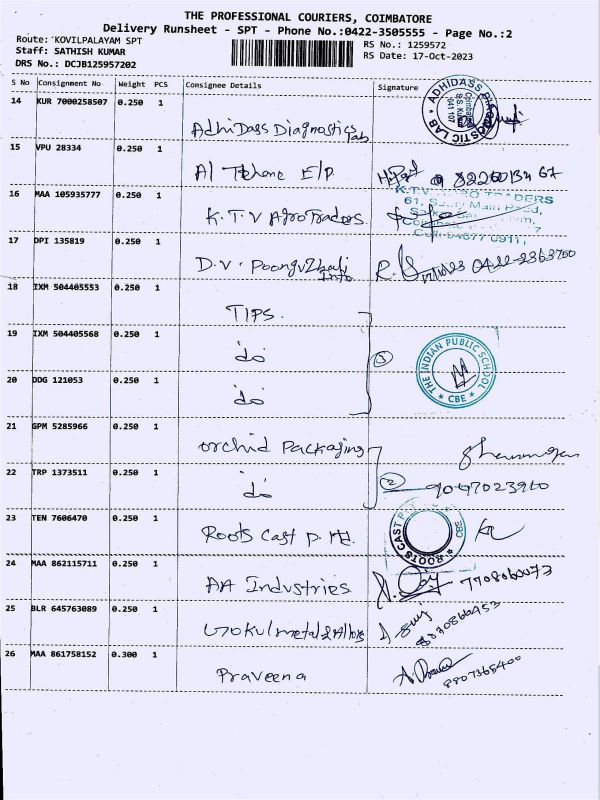 THE PROFESSIONAL COURIERS, COIMBATORE
Delivery Runsheet - SPT - Phone No.:0422-3505555 - Page No.:2
Route: KOVILPALAYAM SPT
RS No.: 1259572
Staff: SATHISH KUMAR
RS Date: 17-Oct-2023
DRS No.: DCJB125957202
S No Consignment No Weight PCS Consignee Details Signature
14 KUR 7000258507 0.250 1 Adhi Dass Diagnostics Lab
ADHIDASS DIAGNOSTIC LAB
641 107
15 VPU 28334 0.250 1 E/P
16 MAA 105935777 0.250 1 K.T.V Agro Traders
TRADERS
Main Road,
17 DPI 135819 0.250 1 D.V. Info 0422-2363700
18 IXM 504405553 0.250 1 TIPS.
19 IXM 504405568 0.250 1 do
3
THE INDIAN PUBLIC SCHOOL
CBE
20 DDG 121053 0.250 1 do
21 GPM 5285966 0.250 1 orchid Packaging
22 TRP 1373511 0.250 1 do 2 9047023960
23 TEN 7606470 0.250 1 Roots Cast P. Ltd.
ROOTS CAST
CBE
24 MAA 862115711 0.250 1 AA Industries 7708060073
25 BLR 645763089 0.250 1 Gokul metal & Alloys
26 MAA 861758152 0.300 1 Praveena 8807365400